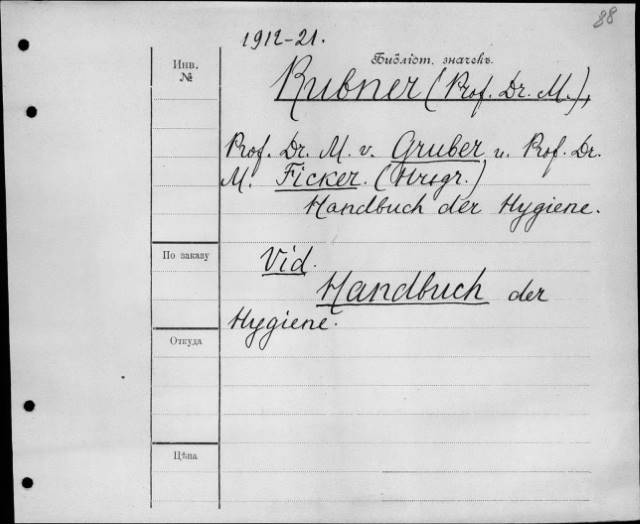 88
1912-21.
Инв. №
Библіот. значекъ.
Rubner (Prof. Dr. M.),
Prof. Dr. M. v. Gruber u. Prof. Dr.
M. Ficker. (Hrsgr.)
Handbuch der Hygiene.
По заказу
Vid.
Handbuch der
Hygiene.
Откуда
Цѣна